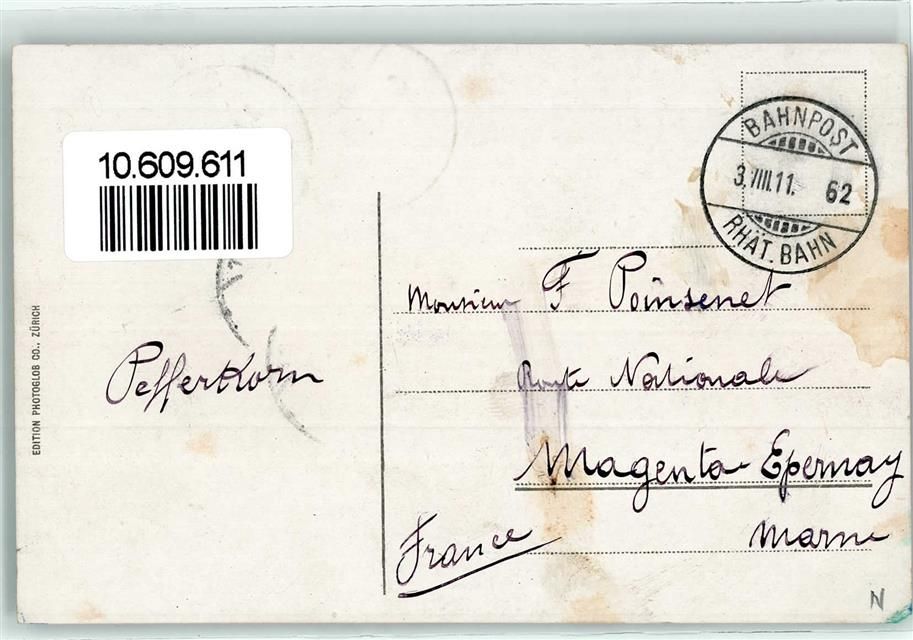 10.609.611
BAHNPOST
3.VIII.11. 62
RHÄT. BAHN
EDITION PHOTOGLOB CO., ZÜRICH
Pefferkorn
Monsieur F Poinsenet
Route Nationale
Magenta-Epernay
Marne
France
N